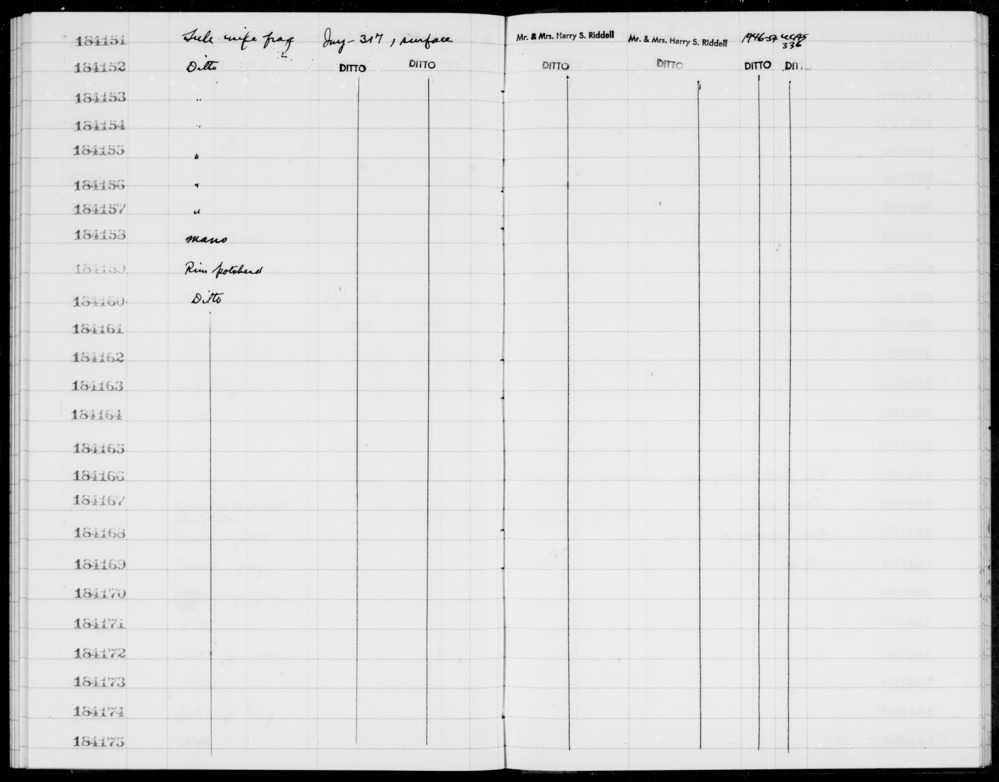 184151 frag Iny-317, surface Mr. & Mrs. Harry S. Riddell Mr. & Mrs. Harry S. Riddell 336
184152 Ditto DITTO DITTO DITTO DITTO DITTO DIT
184153 "
184154 "
184155 "
184156 "
184157 "
184158 mano
184159 Rim potsherd
184160 Ditto
184161
184162
184163
184164
184165
184166
184167
184168
184169
184170
184171
184172
184173
184174
184175